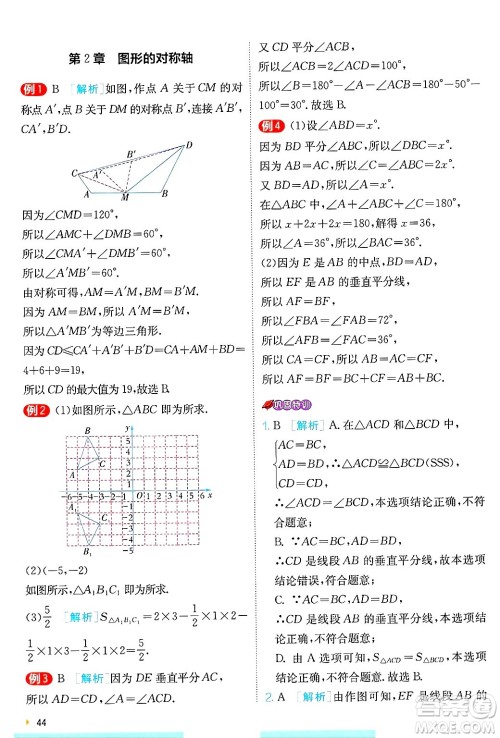 第2章 图形的对称轴
例1 B [解析]如图,作点 A 关于 CM 的对
称点 A′,点 B 关于 DM 的对称点 B′,连接 A′B′,
CA′,B′D.
D
B′
C A′
A M B
因为∠CMD=120°,
所以∠AMC+∠DMB=60°,
所以∠CMA′+∠DMB′=60°,
所以∠A′MB′=60°.
由对称可得,AM=A′M,BM=B′M,
因为 AM=BM,所以 A′M=B′M,
所以△A′MB′为等边三角形.
因为 CD≤CA′+A′B′+B′D=CA+AM+BD=
4+6+9=19,
所以 CD 的最大值为 19.故选 B.
例2 (1)如图所示,△ABC 即为所求.
(2)(-5,-2)
如图所示,△A₁B₁C₁ 即为所求.
(3)5/2 [解析]S△A₁B₁C₁=2×3-1/2×1×2-
1/2×1×2-1/2×1×3=5/2.
例3 B [解析]因为 DE 垂直平分 AC,
所以 AD=CD,所以∠A=∠ACD.
44
又 CD 平分∠ACB,
所以∠ACB=2∠ACD=100°,
所以∠B=180°-∠A-∠ACB=180°-50°-
100°=30°.故选 B.
例4 (1)设∠ABD=x°.
因为 BD 平分∠ABC,所以∠DBC=x°.
因为 AB=AC,所以∠C=∠ABC=2x°.
又因为∠A=∠ABD,所以∠A=x°.
在△ABC 中,∠A+∠ABC+∠C=180°,
所以 x+2x+2x=180,解得 x=36,
所以∠A=36°,所以∠BAC=36°.
(2)因为 E 是 AB 的中点,BD=AD,
所以 EF 是 AB 的垂直平分线,
所以 AF=BF,
所以 AF=BF=AB+AC=CF,
所以 CF=AB+AC.
巩固特训
1. B [解析] A. 在△ACD 和△BCD 中,
AC=BC,
AD=BD,
CD=CD,
∴△ACD≌△BCD(SSS),
∴∠ACD=∠BCD,故本选项结论正确,不符
合题意;
B. ∵AC=BC,AD=BD,
∴CD 是线段 AB 的垂直平分线,故本选项
结论不正确,符合题意;
C. ∵AC=BC,AD=BD,
∴CD 是线段 AB 的垂直平分线,故本选项
结论正确,不符合题意;
D. 由 A 选项可知,S△ACD=S△BCD,故本选
项结论正确,不符合题意.
2. A [解析] 由作图可知,EF 是线段 AB 的